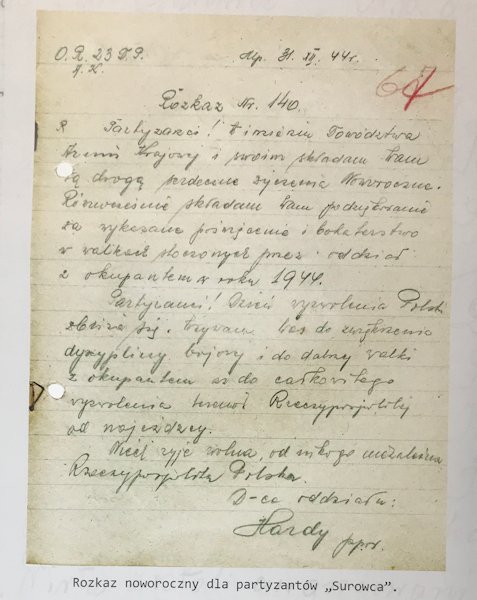 O.P. 23 D.P. Mp. 31. XII. 44 r.
A.K.
67
Rozkaz Nr. 140.
Partyzanci! W imieniu Dowództwa
Armii Krajowej i swoim składam Wam
tą drogą serdeczne życzenia Noworoczne.
Równocześnie składam Wam podziękowanie
za wykazane poświęcenie i bohaterstwo
w walkach stoczonych przez oddział
z okupantem w roku 1944.
Partyzanci! Dzień wyzwolenia Polski
zbliża się. Wzywam Was do zwiększenia
dyscypliny bojowej i do dalszej walki
z okupantem aż do całkowitego
wyzwolenia terenów Rzeczypospolitej
od najeźdźcy.
Niech żyje wolna, od nikogo niezależna
Rzeczypospolita Polska.
D-ca oddziału:
Hardy ppor.
Rozkaz noworoczny dla partyzantów „Surowca”.